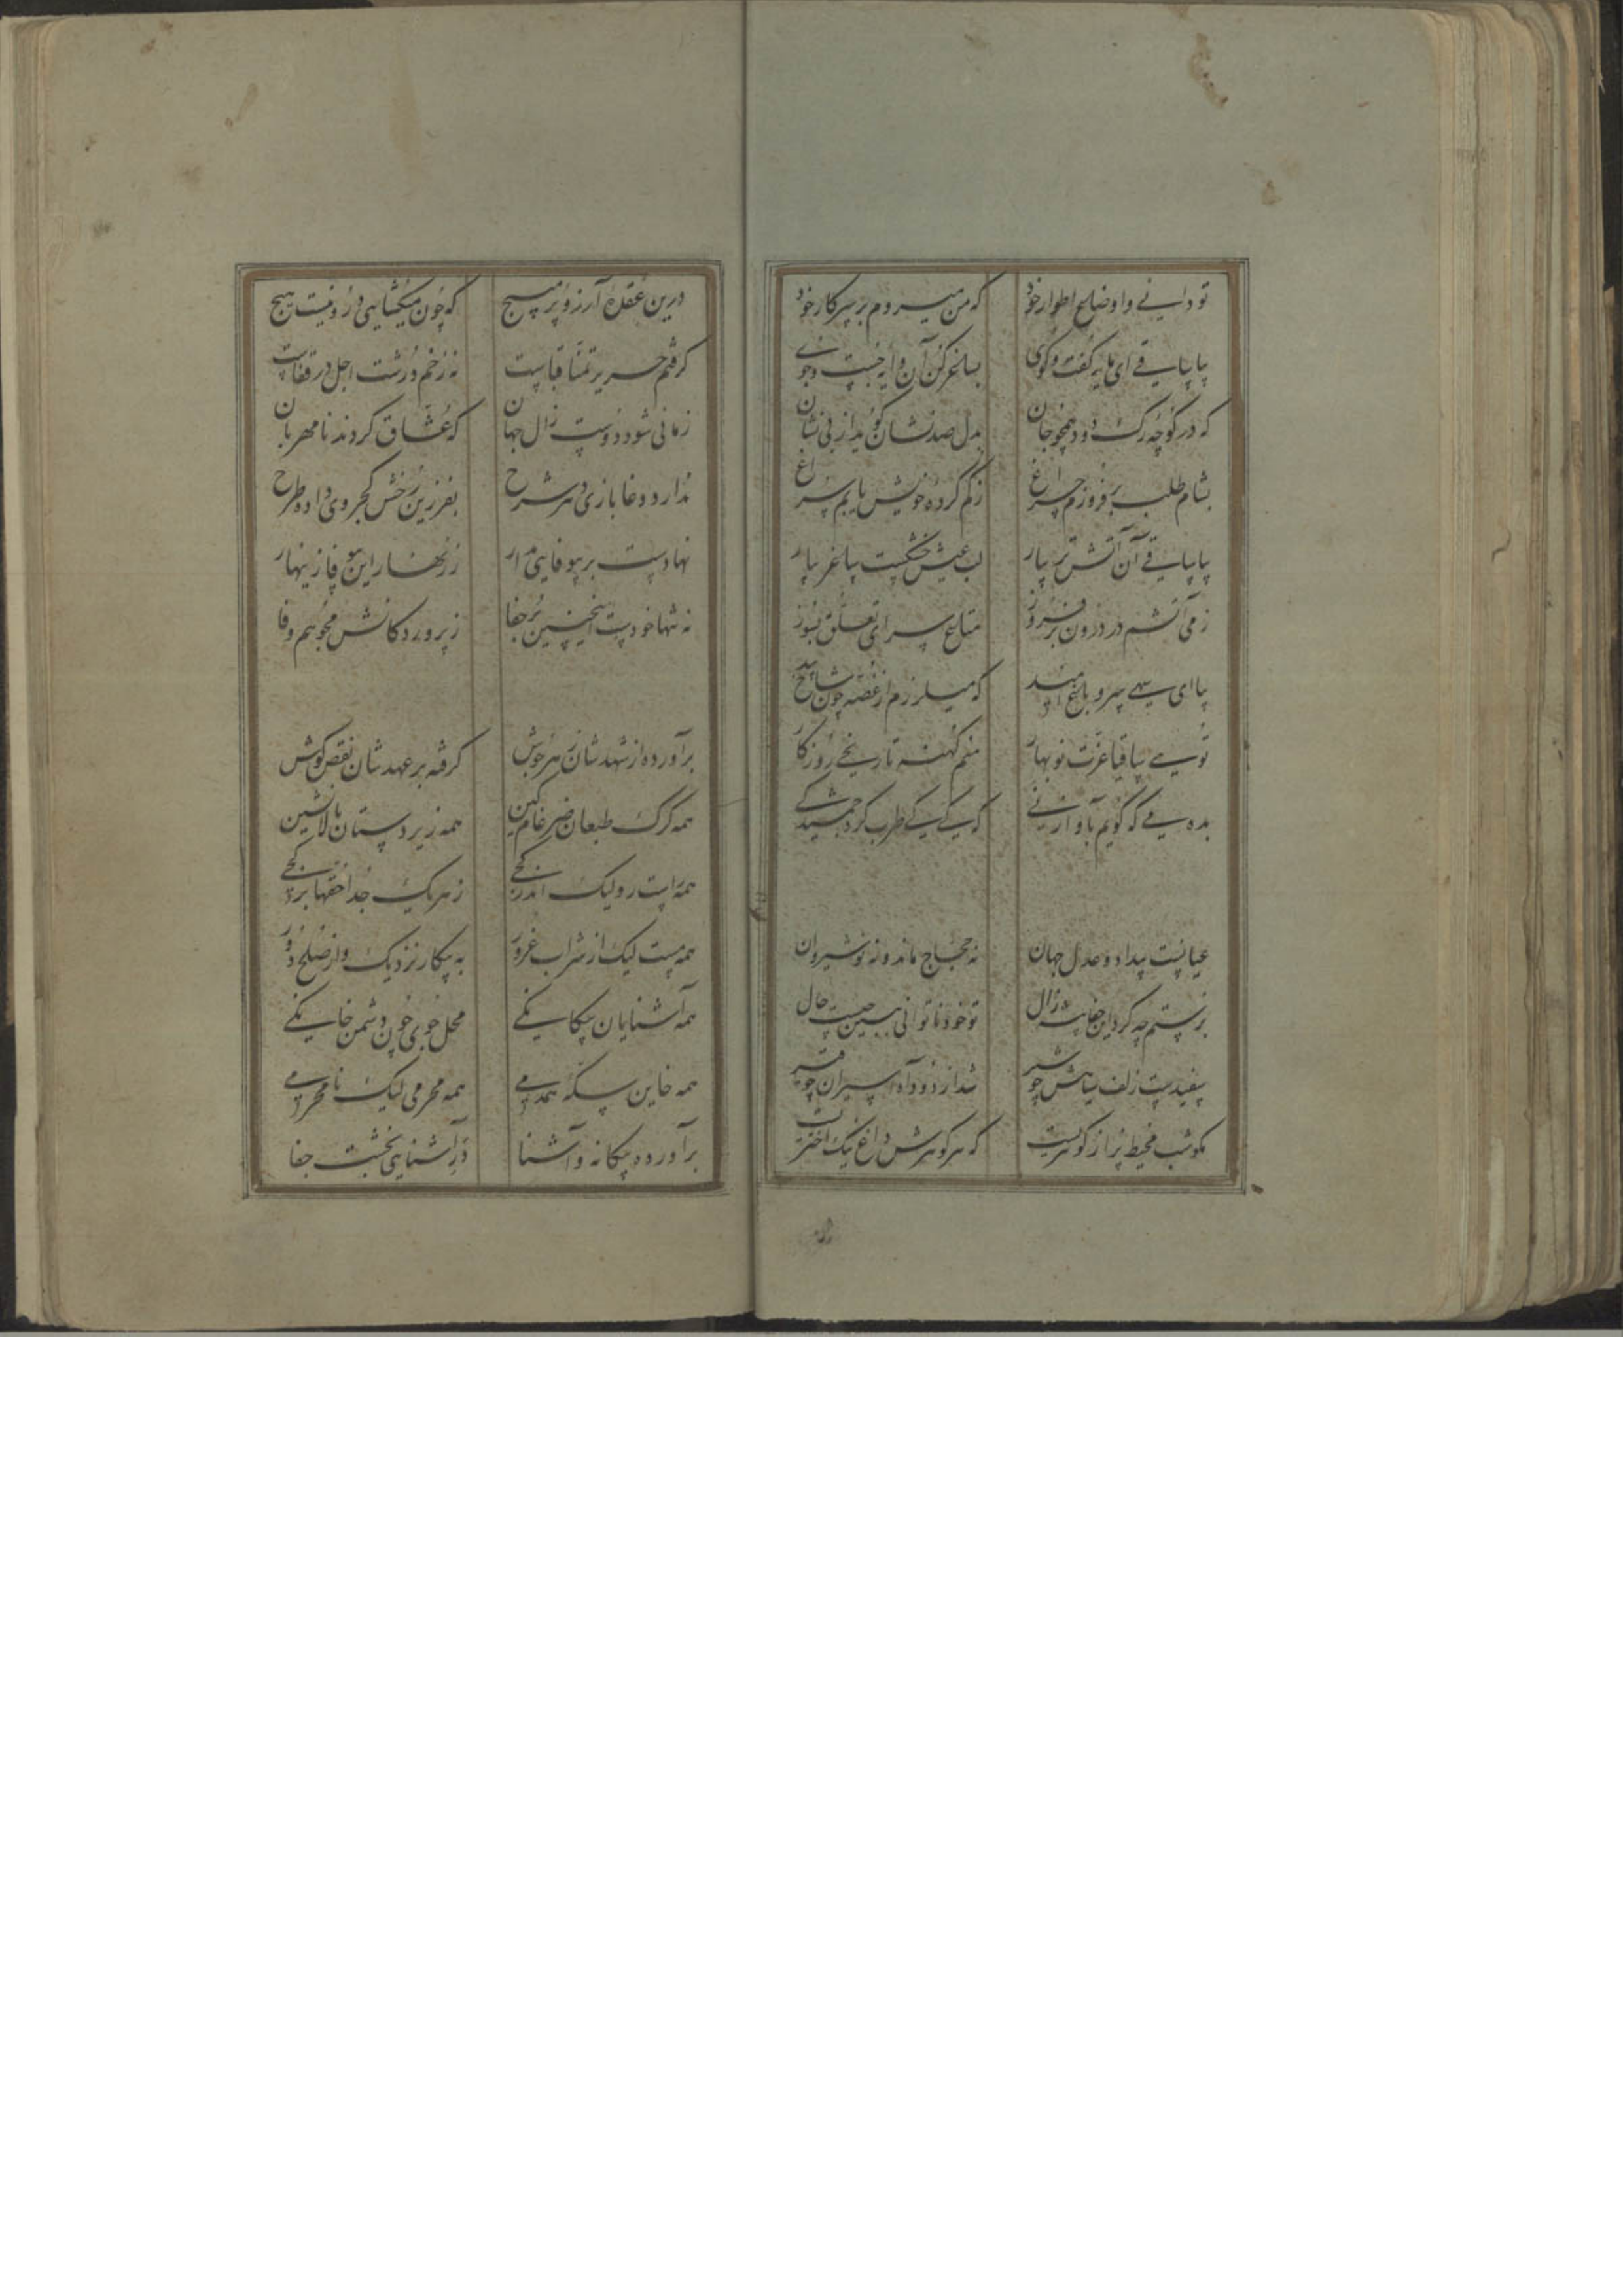 تو دانی و اوضاع اطوار خود که من میروم بر سر کار خود
بیا ساقی ای مایه گفت و کوی بساغر کن آن دایه جست و جوی
که در کوچه رک دود همچو جان بدل صد نشان کوید از بی نشان
بشام طلب برفروزم چراغ ز کم کرده خویش یابم سراغ
بیا ساقی آن آتش تر بیار لب عیش خشکست ساغر بیار
ز می آتشم در درون برفروز متاع سرای تعلق بسوز
بیا ای سهی سرو باغ امید که میلرزم از غصه چون شاخ بید
تویی ساقیا غرت نوبهار منم کهنه تاریخی روزکار
بده می که کویم بآواز نی که کی کی طرب کرد جمشید کی
عیانست بیداد و عدل جهان نه حجاج ماند و نه نوشیروان
برستم چه کرد این جفاپیشه زال تو خود ناتوانی ببین چیست حال
سفیدست زلف سیاهش چو شیر شد از دود آه اسیران چو قیر
مکو شب محیط پر از کوهرست که هر کوهرش داغ نیک اخترست
درین عقده آرزو پر مپیچ که چون میکشایی درو نیست هیچ
کرفتم حریر تمنا قباست نه زخم درشت اجل در قفاست
زمانی شود دوست زال جهان که عشاق کردند نامهربان
ندارد دغا بازی هر شرح بفرزین رخش کجروی داده طرح
نهادست بر بیوفایی مدار ز زنهار این بیوفا زینهار
نه تنها خودست اینچنین پر جفا ز پروردکانش مجو هم وفا
برآورده از شهدشان زهر جوش کرفته بر عهدشان نقض کوش
همه کرک طبعان ضرغام کین همه زیردستان بالانشین
همه راست رو لیک اندر کجی ز هر یک جدا حقها بر کجی
همه مست لیک از شراب غرور به پیکار نزدیک و از صلح دور
همه آشنایان بیکانکی محل جوی چون دشمن خانکی
همه خاین سکه همدمی همه محرمی لیک نامحرمی
برآورده بیکانه و آشنا در آشنایی بخشت جفا